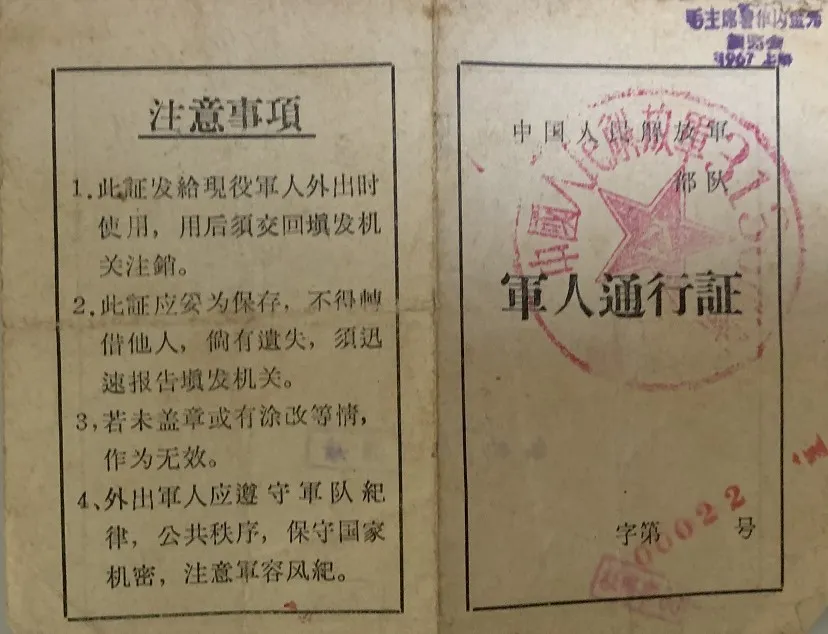 注意事項
1.此証发給現役軍人外出时
使用，用后須交回填发机
关注銷。
2.此証应妥为保存，不得轉
借他人，倘有遺失，須迅
速报告填发机关。
3,若未盖章或有涂改等情，
作为无效。
4、外出軍人应遵守軍队紀
律，公共秩序，保守国家
机密，注意軍容风紀。
毛主席
1967 上海
中国人民解放軍
部队
中國人民解放軍315
軍人通行証
字第 00022 号